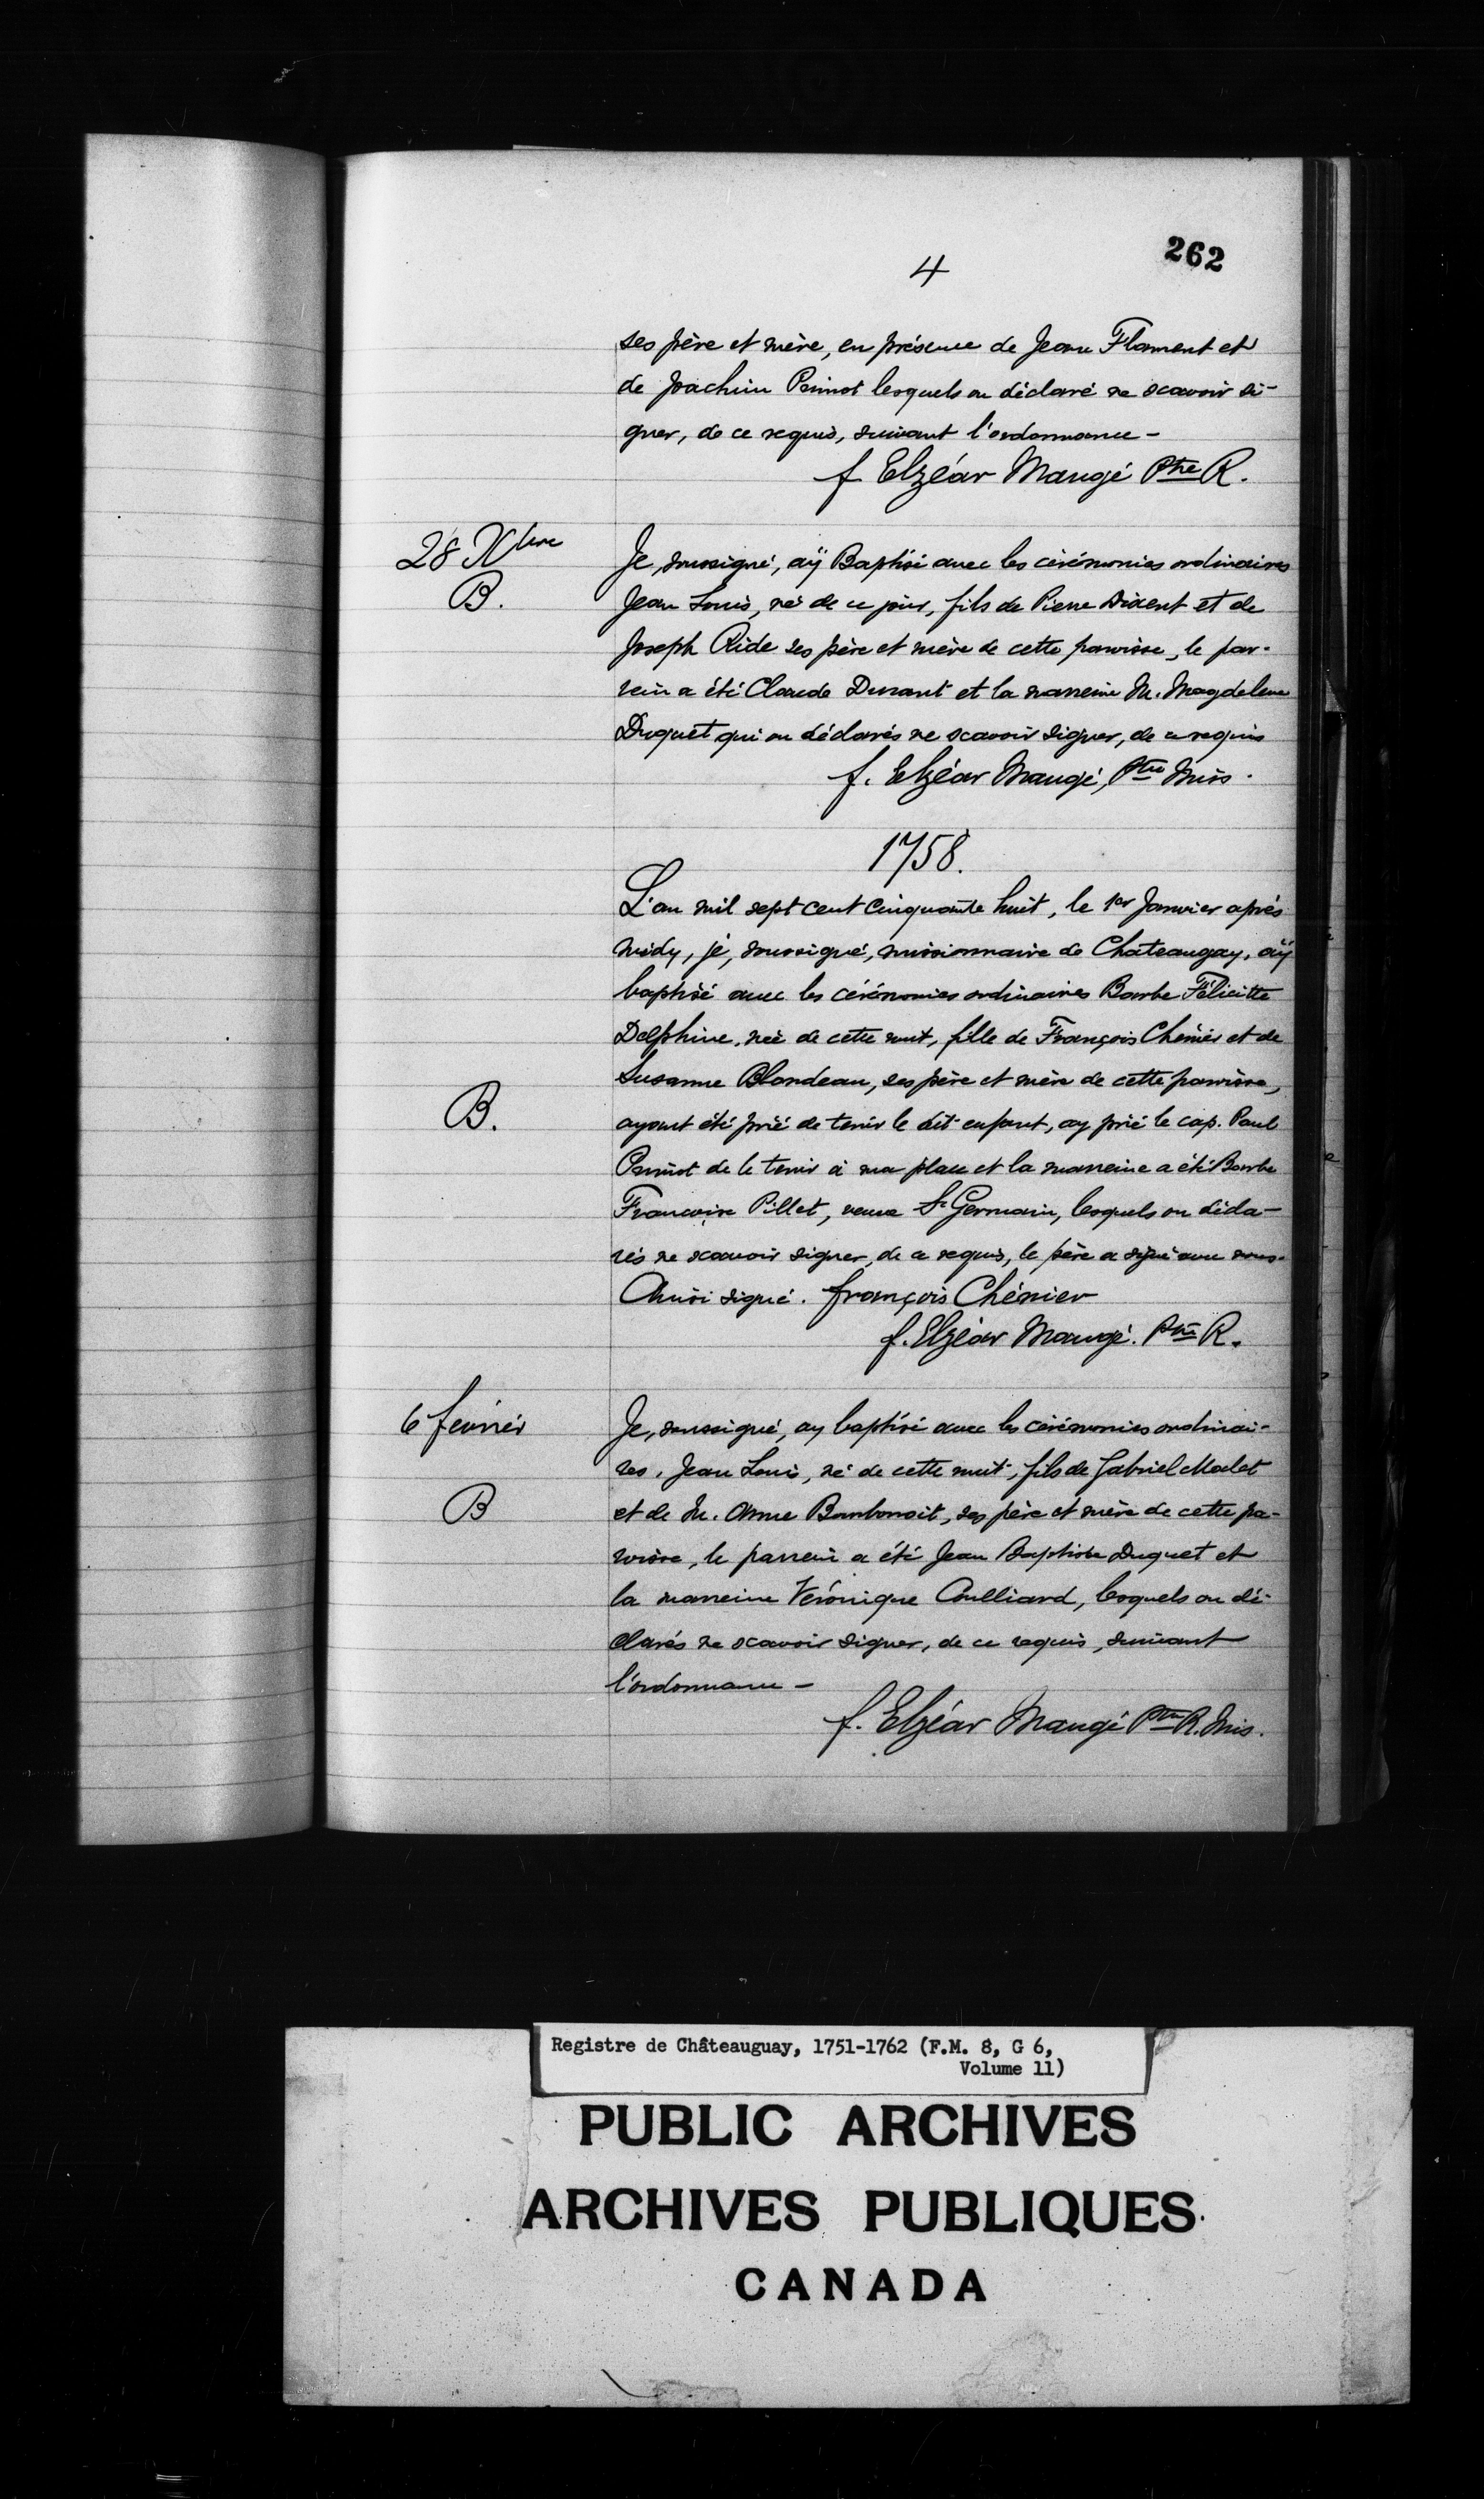 262
4
ses père et mère, en présence de Jean Flament et
de Joachim Primot lesquels on déclaré ne scavoir si-
gner, de ce requis, suivant l'ordonnance -
f Elzéar Maugé Ptre R.
28 Xbre
Je, soussigné, aÿ Baptisé avec les cérémonies ordinaires
B.
Jean Louis, né de ce jour, fils de Pierre et de
Joseph Ride ses père et mère de cette paroisse, le par-
rein a été Claude Durant et la marreine M. Magdeleine
Duquet qui on déclarés ne scavoir signer, de ce requis
f. Elzéar Maugé, Ptre Miss.
1758.
L'an mil sept cent cinquante huit, le 1er Janvier après
midy, je, soussigné, missionnaire de Chateaugay, aÿ
baptisé avec les cérémonies ordinaires Barbe Félicitte
Delphine, née de cette nuit, fille de François Chénier et de
Susanne Blondeau, ses père et mère de cette paroisse,
B.
ayant été prié de tenir le dit enfant, ay prié le cap. Paul
Primot de le tenir à ma place et la marreine a été Barbe
Francoise Pillet, veuve St Germain, lesquels on décla-
rés ne scavoir signer, de ce requis, le père a signé avec nous.
Ainsi signé. françois Chénier
f. Elzéar Maugé. Ptre R.
6 février
Je, soussigné, ay baptisé avec les cérémonies ordinai-
res, Jean Louis, né de cette nuit, fils de Gabriel Malet
B
et de M. Anne Bourbonoit, ses père et mère de cette pa-
roisse, le parrein a été Jean Baptiste Duquet et
la marreine Véronique Couilliard, lesquels on dé-
clarés ne scavoir signer, de ce requis, suivant
l'ordonnance -
f. Elzéar Maugé Ptre R. Mis.
Registre de Châteauguay, 1751-1762 (F.M. 8, G 6,
Volume 11)
PUBLIC ARCHIVES
ARCHIVES PUBLIQUES
CANADA